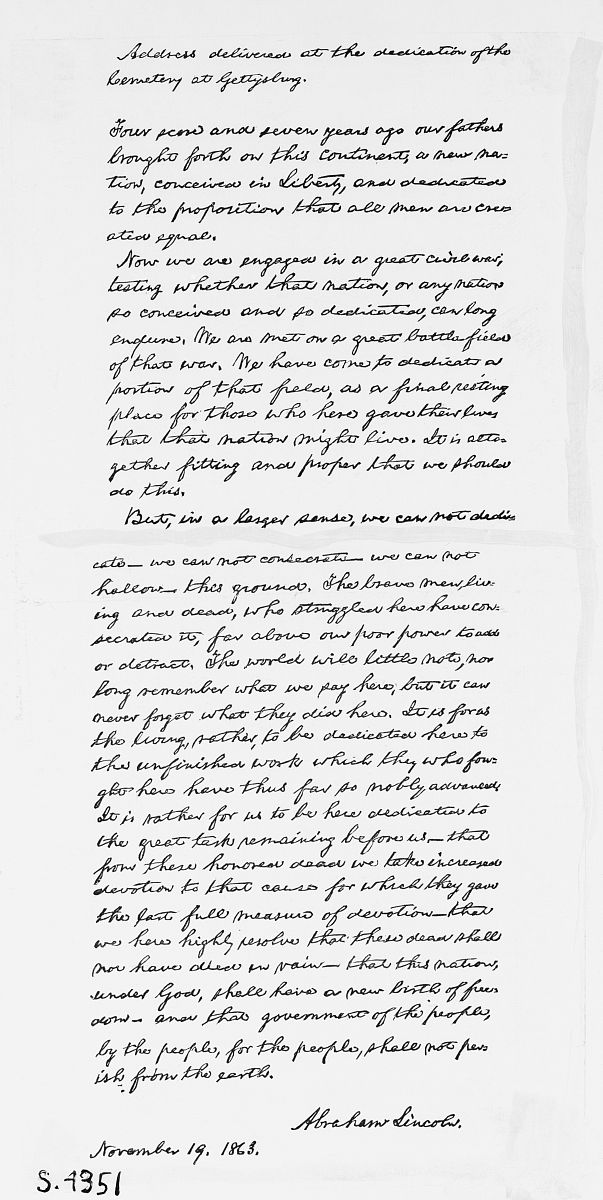 Address delivered at the dedication of the
Cemetery at Gettysburg.
Four score and seven years ago our fathers
brought forth on this continent, a new na-
tion, conceived in Liberty, and dedicated
to the proposition that all men are cre-
ated equal.
Now we are engaged in a great civil war,
testing whether that nation, or any nation
so conceived and so dedicated, can long
endure. We are met on a great battle-field
of that war. We have come to dedicate a
portion of that field, as a final resting
place for those who here gave their lives
that that nation might live. It is alto-
gether fitting and proper that we should
do this.
But, in a larger sense, we can not dedi-
cate— we can not consecrate— we can not
hallow— this ground. The brave men, liv-
ing and dead, who struggled here have con-
secrated it, far above our poor power to add
or detract. The world will little note, nor
long remember what we say here, but it can
never forget what they did here. It is for us
the living, rather, to be dedicated here to
the unfinished work which they who fou-
ght here have thus far so nobly advanced.
It is rather for us to be here dedicated to
the great task remaining before us— that
from these honored dead we take increased
devotion to that cause for which they gave
the last full measure of devotion— that
we here highly resolve that these dead shall
not have died in vain— that this nation,
under God, shall have a new birth of free-
dom— and that government of the people,
by the people, for the people, shall not per-
ish from the earth.
Abraham Lincoln.
November 19. 1863.
S.4351